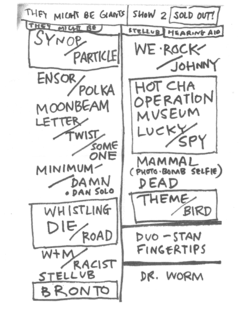 THEY MIGHT BE GIANTS SHOW 2 SOLD OUT!
THEY MIGHT BE
SYNOP
PARTICLE
ENSOR/
POLKA
MOONBEAM
LETTER/
TWIST/
SOME
ONE
MINIMUM-
DAMN
+ DAN SOLO
WHISTLING
DIE/
ROAD
W+M/
RACIST
STELLUB
BRONTO
STELLUB HEARING AID
WE·ROCK/
JOHNNY
HOT CHA
OPERATION
MUSEUM
LUCKY/
SPY
MAMMAL
(PHOTO-BOMB SELFIE)
DEAD
THEME/
BIRD
DUO-STAN
FINGERTIPS
DR. WORM